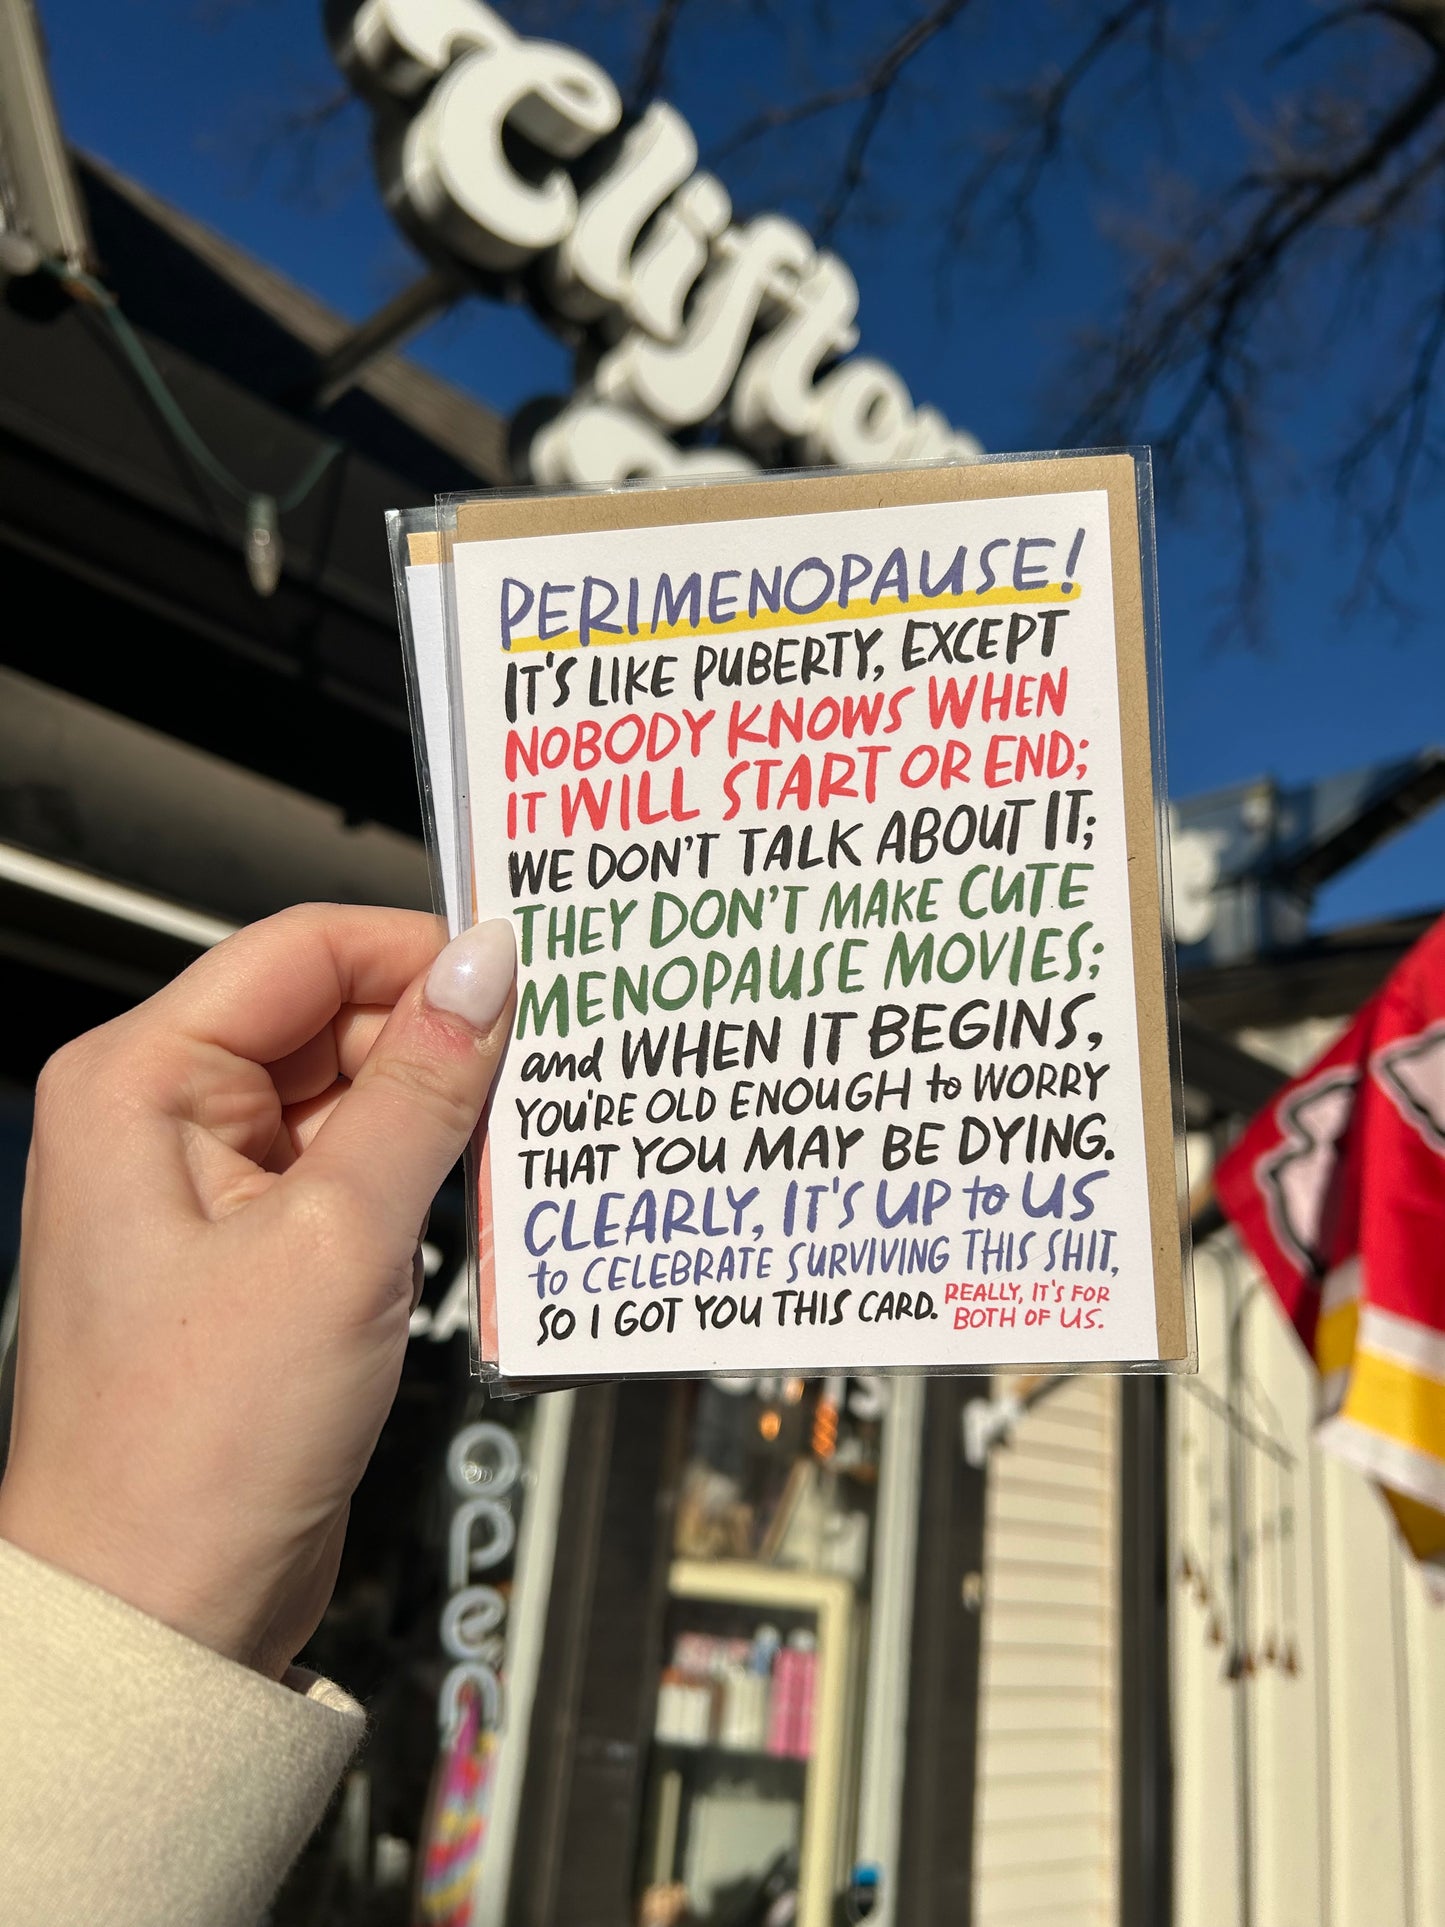 Clifton
PERIMENOPAUSE!
IT'S LIKE PUBERTY, EXCEPT
NOBODY KNOWS WHEN
IT WILL START OR END;
WE DON'T TALK ABOUT IT;
THEY DON'T MAKE CUTE
MENOPAUSE MOVIES;
and WHEN IT BEGINS,
YOU'RE OLD ENOUGH to WORRY
THAT YOU MAY BE DYING.
CLEARLY, IT'S UP to US
to CELEBRATE SURVIVING THIS SHIT,
SO I GOT YOU THIS CARD. REALLY, IT'S FOR
BOTH OF US.
open